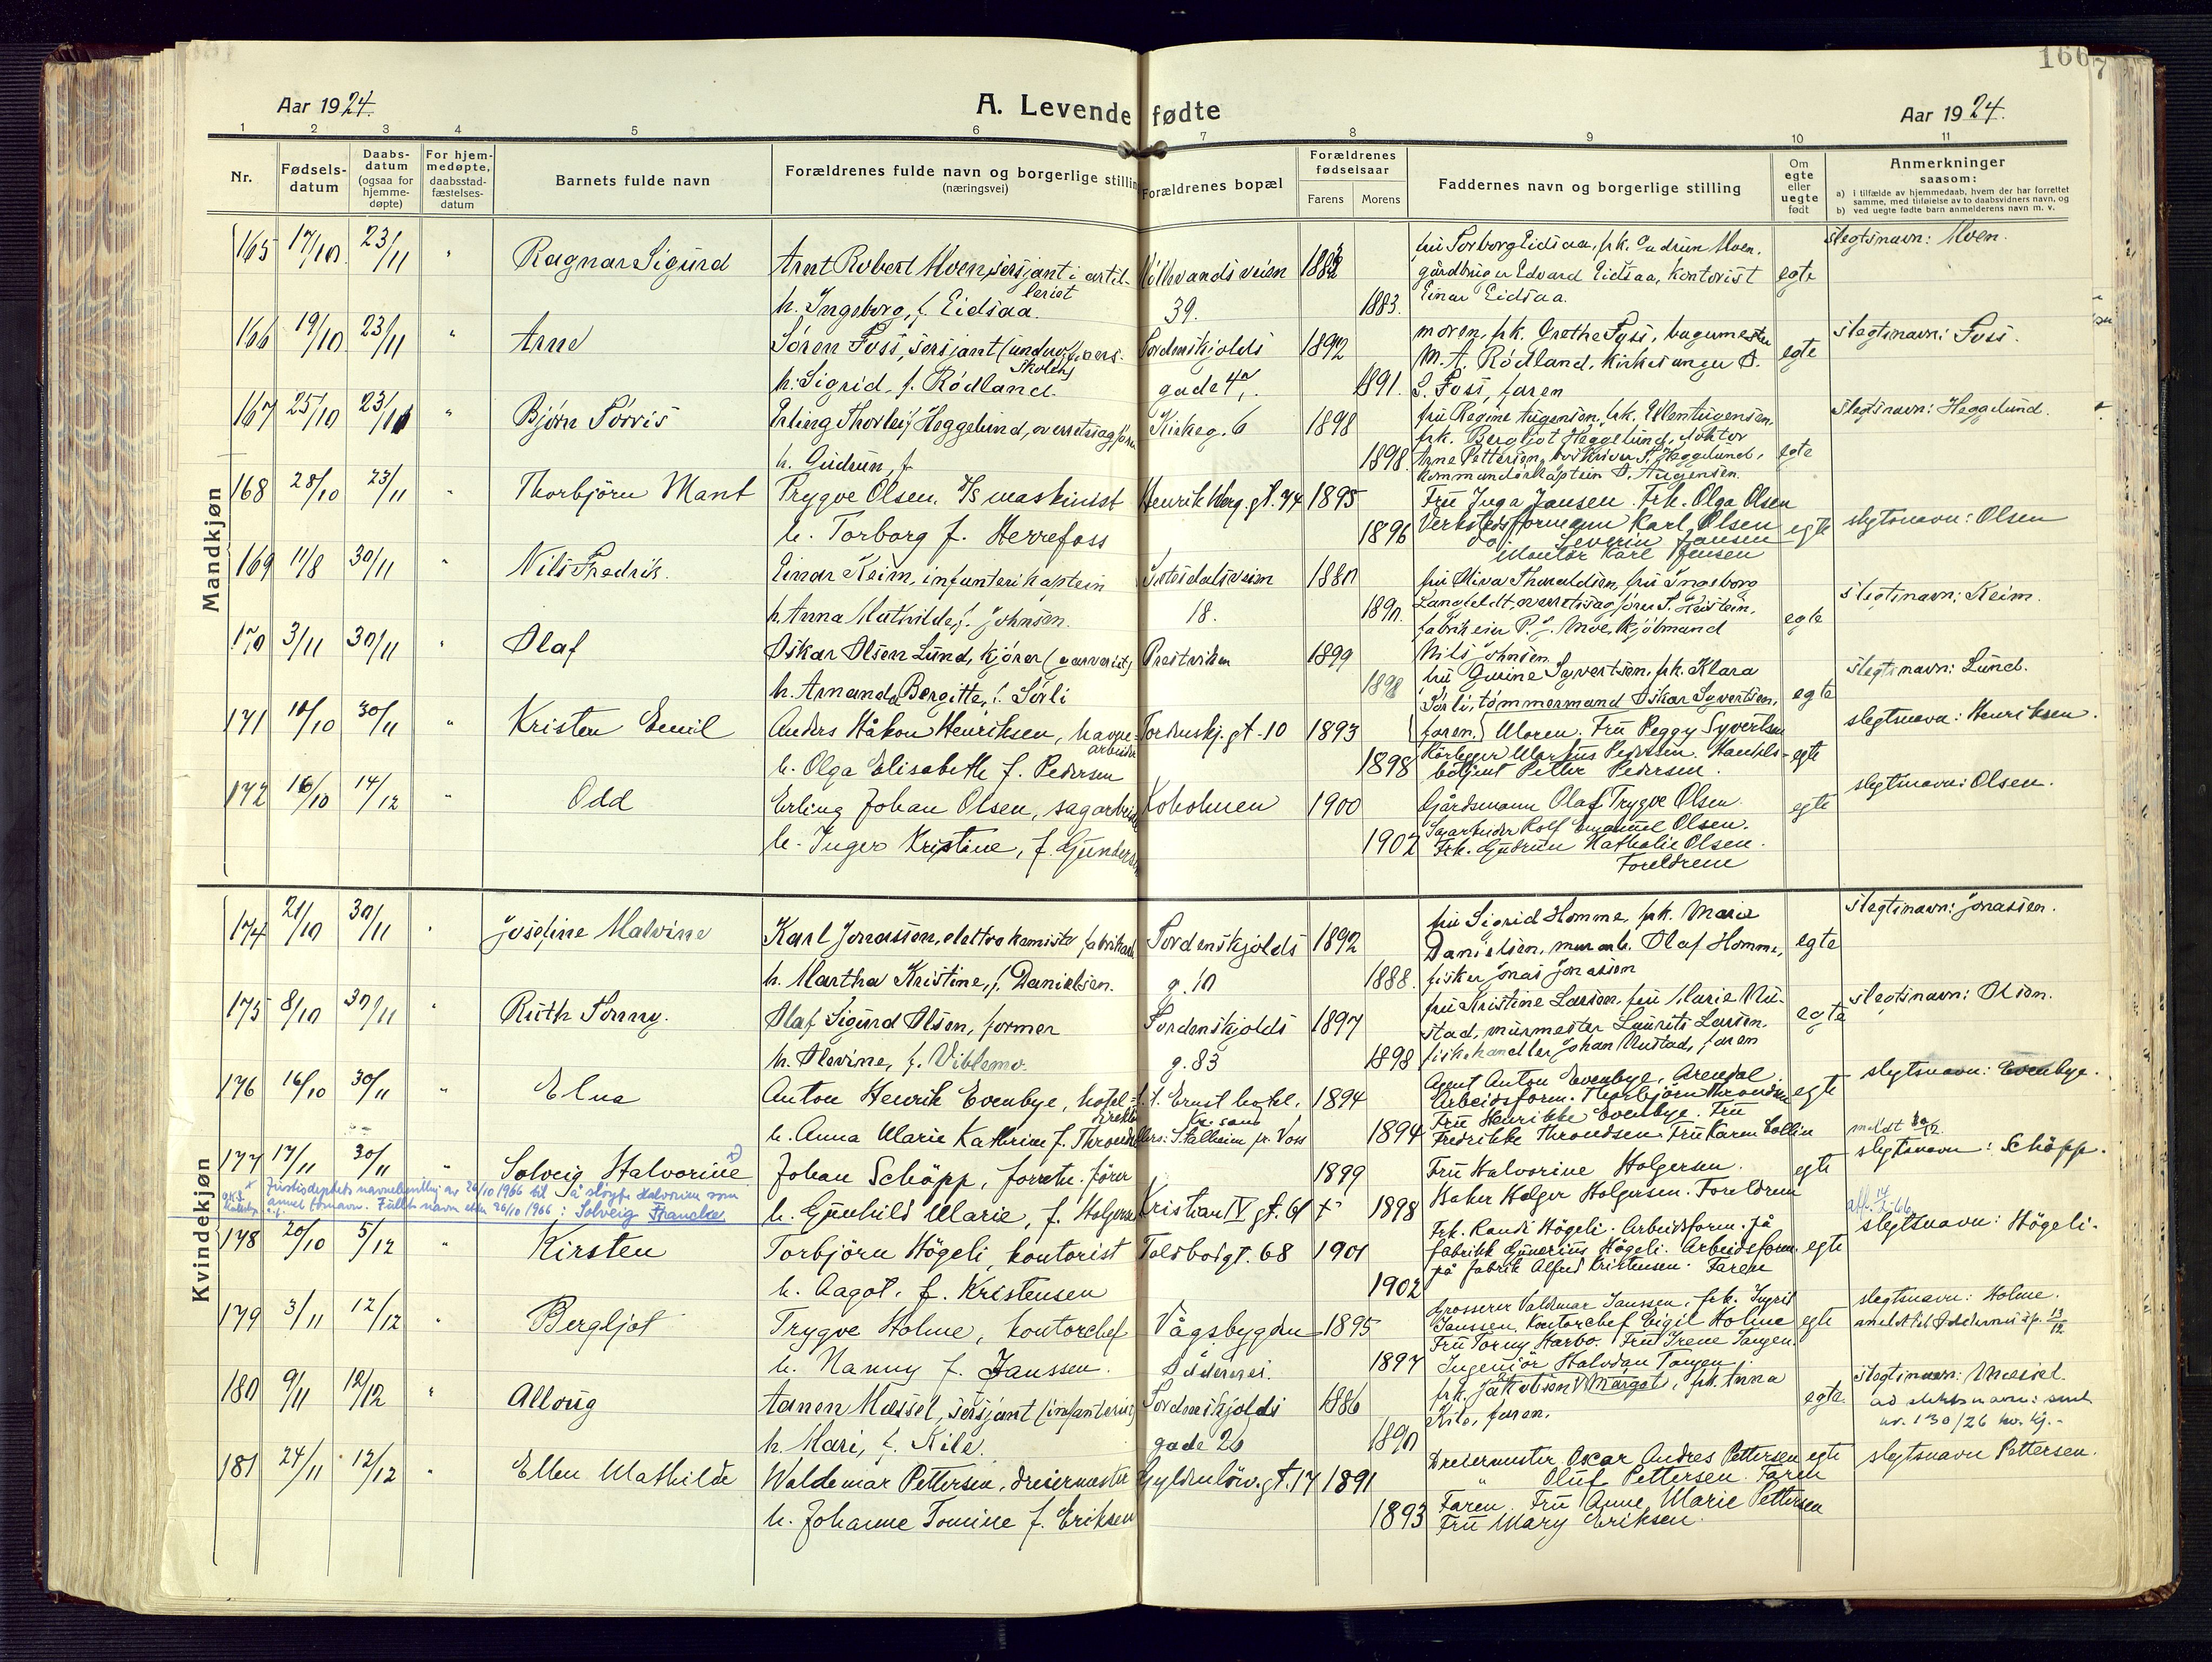 166
7
Aar 1924.
A. Levende fødte
Aar 1924.
1 2 3 4 5 6 7 8 9 10 11
Nr.
Fødsels-
datum
Daabs-
datum
(ogsaa for
hjemme-
døpte)
For hjem-
medøpte,
daabsstad-
fæstelses-
datum
Barnets fulde navn
Forældrenes fulde navn og borgerlige stilling
(næringsvei)
Forældrenes bopæl
Forældrenes
fødselsaar
Farens Morens
Faddernes navn og borgerlige stilling
Om
egte
eller
uegte
født
Anmerkninger
saasom:
a) i tilfælde av hjemmedaab, hvem der har forrettet
samme, med tilføielse av to daabsvidners navn, og
b) ved uegte fødte barn anmelderens navn m. v.
Mandkjøn
165 17/10 23/11 " Ragnar Sigurd
Arnt Robert Moen, sersjant i artil-
leriet
h. Ingeborg, f. Eidsaa.
39.
1883.
fru Torborg Eidsaa, frk. Gudrun Moen.
gårdbruger Edvard Eidsaa, kontorist
Einar Eidsaa.
egte
slegtsnavn: Moen.
166 19/10 23/11 " Arne
Søren Foss, sersjant (underoffisers-
skolen)
h. Sigrid, f. Rødland.
Tordenskjolds
gade 4
1892
1891.
M. A. Rødland, kirkesanger O.
S. Foss, faren
egte
slegtsnavn: Foss.
167 25/10 23/11 " Bjørn
Erling Thorleif Heggelund, overretssagfører
h. Gudrun, f.
Kirkeg. 6
1898
1898.
frk. Bergljot Heggelund, doktor
egte
slegtsnavn: Heggelund.
168 28/10 23/11 " Thorbjørn Mant
Trygve Olsen. D/S maskinist
h. Torborg f. Herrefoss
1895
1896
Fru Inga Jansen. Frk. Olga Olsen
Verkstedsformann Karl Olsen
do. Severin Jansen
Montør Karl Jensen
egte
slegtsnavn: Olsen
169 11/8 30/11 " Nils Fredrik.
Einar Keim, infanterikaptein
h. Anna Mathilde, f. Johnsen.
Setesdalsveien
18.
1880
1890.
fabrikeier P. J. Moe, kjøbmand
Nils Johnsen.
egte
slegtsnavn: Keim.
170 3/11 30/11 " Olaf
Oskar Olsen Lund, kjører (garveriet)
h. Amanda Bergitte, f. Sørli
Prestviken
1899
1898
fru Gurine Syvertsen, frk. Klara
Sørli, tømmermand Oskar Syvertsen,
faren.
egte
slegtsnavn: Lund.
171 10/10 30/11 " Kristen Emil
Anders Håkon Henriksen, havne-
arbeider
h. Olga Elisabeth f. Pedersen
Tordenskj. gt. 10
1893
1898
Moren. Fru Peggy Syvertsen
Rørlegger Markus Pedersen. Handels-
betjent Petter Pedersen.
egte
slegtsnavn: Henriksen.
172 16/10 14/12 " Odd
Erling Johan Olsen, sagarbeider
h. Inger Kristine, f. Gundersen
Koholmen
1900
1902
Gårdsmann Olaf Trygve Olsen.
Sagarbeider Rolf Emanuel Olsen.
Frk. Gudrun Nathalie Olsen.
Foreldrene
egte
slegtsnavn: Olsen.
Kvindekjøn
174 21/10 30/11 " Josefine Malvine
Karl Jonassen, elektrokemiske fabrikker
h. Martha Kristine, f. Danielsen.
Tordenskjolds
g. 10
1892
1888.
fru Sigrid Homme, frk. Marie
Danielsen, murarb. Olaf Homme,
fisker Jonas Jonassen
egte
slegtsnavn: Jonassen.
175 8/10 30/11 " Ruth Tonny.
Olaf Sigurd Olsen, former
h. Olevine, f. Viblemo.
Tordenskjolds
g. 83
1897
1898
fru Kristine Larsen, fru Marie Nu-
stad, murmester Laurits Larsen,
fiskehandler Johan Nustad, faren
egte
slegtsnavn: Olsen.
176 16/10 30/11 " Elna
Anton Henrik Evenbye, hotel-
direktør
h. Anna Marie Kathrine f. Throndsen
f. t. Ernst hotel,
Kr.sand
ders: Stalheim pr. Voss
1894
1894
Agent Anton Evenbye, Arendal
Arbeidsform. Thorbjørn Throndsen
Fru Henrikke Evenbye. Fru
Fredrikke Throndsen. Fru Karen Collin
egte
slegtsnavn: Evenbye.
177 17/11 30/11 " Solveig Halvorine x)
Johan Schöpp, forretn. fører
h. Gunhild Marie, f. Holgersen
Kristian IV gt. 61
1899
1898
Fru Halvorine Holgersen.
Baker Holger Holgersen. Foreldrene
egte
meldt 30/12.
slegtsnavn: Schöpp.
Justisdeptets navnebevilling av 26/10 1966 til å sløyfe Halvorine som
annet fornavn. Fullt navn etter 26/10 1966: Solveig Francke
178 20/10 5/12 " Kirsten
Torbjörn Högeli, kontorist
h. Aagot, f. Kristensen
Toldbodgt. 68
1901
1902
Frk. Randi Högeli. Arbeidsform. på
fabrikk Gunerius Högeli. Arbeidsform.
på fabrik Alfred Kristensen. Faren
egte
slegtsnavn: Högeli.
179 3/11 12/12 " Bergljot
Trygve Holme, kontorchef
h. Nanny f. Janssen.
Vågsbygden
Oddernes.
1895
1897
Grosserer Valdemar Janssen, frk. Ingrid
Janssen. Kontorchef Eigil Holme
Fru Torny Harbo. Fru Irene Tangen.
Ingeniör Halvdan Tangen.
egte
slegtsnavn: Holme.
anmeldt til Oddernes sp. 13/12
180 9/11 12/12 " Alloug
Aanen Mæssel, sersjant (infanteriet)
h. Mari, f. Kile.
Tordenskjolds
gade 26
1886
1890
frk. Jakobsen Margot, frk. Anna
Kile, faren.
egte.
slegtsnavn: Mæssel.
ad slektsnavn: sml.
nr. 130/26 kv. kj.-
181 24/11 12/12 " Ellen Mathilde
Waldemar Pettersen, dreiermester
h. Johanne Tomine f. Eriksen
Gyldenløv. gt. 17
1891
1893
Dreiermester Oscar Andres Pettersen
" Oluf Pettersen. Faren
Faren. Fru Anne Marie Pettersen
Fru Mary Eriksen.
egte
slegtsnavn Pettersen.